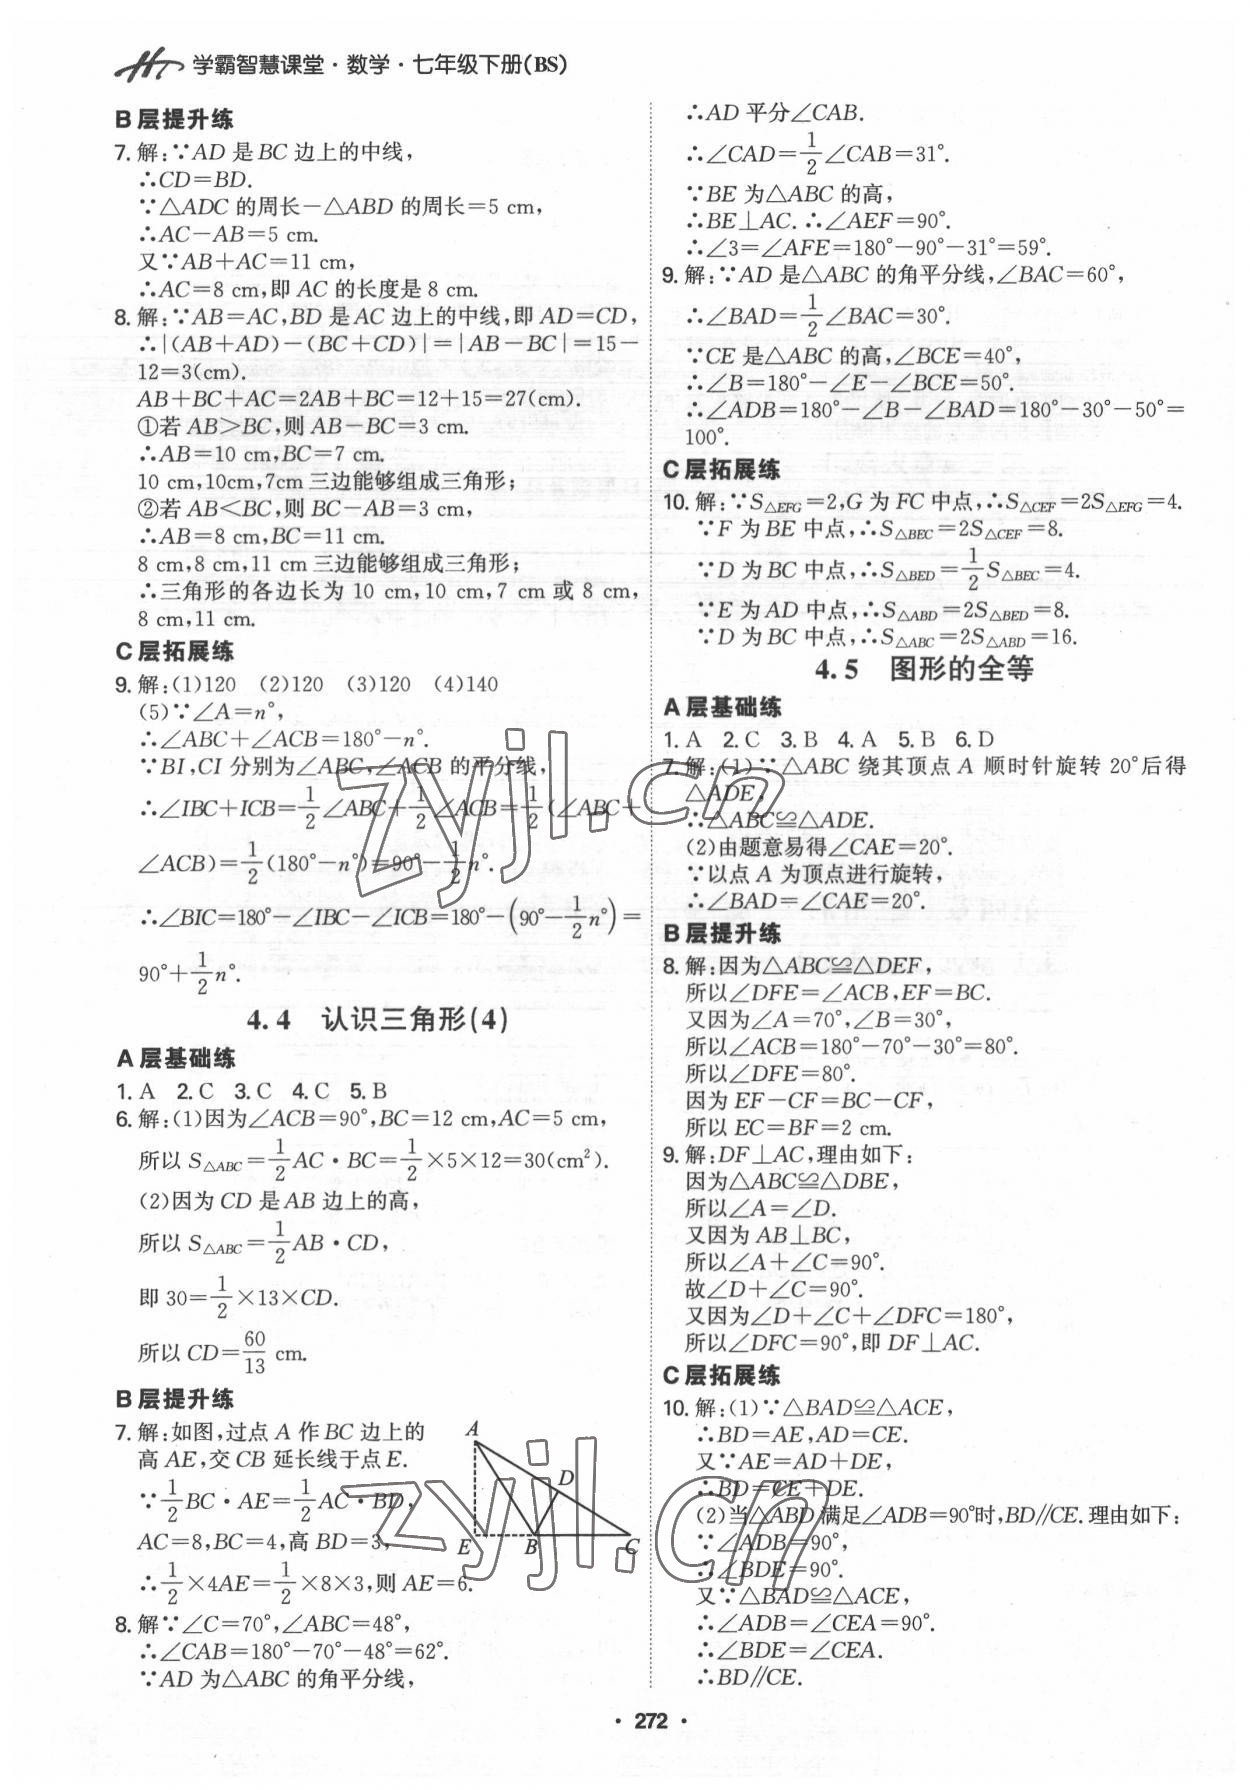 学霸智慧课堂·数学·七年级下册(BS)
B层提升练
7. 解:∵AD 是 BC 边上的中线,
∴CD=BD.
∵△ADC 的周长-△ABD 的周长=5 cm,
∴AC-AB=5 cm.
又∵AB+AC=11 cm,
∴AC=8 cm,即 AC 的长度是 8 cm.
8. 解:∵AB=AC,BD 是 AC 边上的中线,即 AD=CD,
∴|(AB+AD)-(BC+CD)|=|AB-BC|=15-
12=3(cm).
AB+BC+AC=2AB+BC=12+15=27(cm).
①若 AB>BC,则 AB-BC=3 cm.
∴AB=10 cm,BC=7 cm.
10 cm,10cm,7cm 三边能够组成三角形;
②若 AB<BC,则 BC-AB=3 cm,
∴AB=8 cm,BC=11 cm.
8 cm,8 cm,11 cm 三边能够组成三角形;
∴三角形的各边长为 10 cm,10 cm,7 cm 或 8 cm,
8 cm,11 cm.
C层拓展练
9. 解:(1)120 (2)120 (3)120 (4)140
(5)∵∠A=n°,
∴∠ABC+∠ACB=180°-n°.
∵BI,CI 分别为∠ABC,∠ACB 的平分线,
∴∠IBC+ICB=1/2∠ABC+1/2∠ACB=1/2(∠ABC+
∠ACB)=1/2(180°-n°)=90°-1/2n°.
∴∠BIC=180°-∠IBC-∠ICB=180°-(90°-1/2n°)=
90°+1/2n°.
4.4 认识三角形(4)
A层基础练
1. A 2. C 3. C 4. C 5. B
6. 解:(1)因为∠ACB=90°,BC=12 cm,AC=5 cm,
所以 S△ABC=1/2AC·BC=1/2×5×12=30(cm²).
(2)因为 CD 是 AB 边上的高,
所以 S△ABC=1/2AB·CD,
即 30=1/2×13×CD.
所以 CD=60/13 cm.
B层提升练
7. 解:如图,过点 A 作 BC 边上的
高 AE,交 CB 延长线于点 E.
∵1/2BC·AE=1/2AC·BD,
AC=8,BC=4,高 BD=3,
∴1/2×4AE=1/2×8×3,则 AE=6.
A
D
E
B
C
8. 解∵∠C=70°,∠ABC=48°,
∴∠CAB=180°-70°-48°=62°.
∵AD 为△ABC 的角平分线,
∴AD 平分∠CAB.
∴∠CAD=1/2∠CAB=31°.
∵BE 为△ABC 的高,
∴BE⊥AC.∴∠AEF=90°.
∴∠3=∠AFE=180°-90°-31°=59°.
9. 解:∵AD 是△ABC 的角平分线,∠BAC=60°,
∴∠BAD=1/2∠BAC=30°.
∵CE 是△ABC 的高,∠BCE=40°,
∴∠B=180°-∠E-∠BCE=50°.
∴∠ADB=180°-∠B-∠BAD=180°-30°-50°=
100°.
C层拓展练
10. 解:∵S△EFG=2,G 为 FC 中点,∴S△CEF=2S△EFG=4.
∵F 为 BE 中点,∴S△BEC=2S△CEF=8.
∵D 为 BC 中点,∴S△BED=1/2S△BEC=4.
∵E 为 AD 中点,∴S△ABD=2S△BED=8.
∵D 为 BC 中点,∴S△ABC=2S△ABD=16.
4.5 图形的全等
A层基础练
1. A 2. C 3. B 4. A 5. B 6. D
7. 解:(1)∵△ABC 绕其顶点 A 顺时针旋转 20°后得
△ADE,
∴△ABC≌△ADE.
(2)由题意易得∠CAE=20°.
∵以点 A 为顶点进行旋转,
∴∠BAD=∠CAE=20°.
B层提升练
8. 解:因为△ABC≌△DEF,
所以∠DFE=∠ACB,EF=BC.
又因为∠A=70°,∠B=30°,
所以∠ACB=180°-70°-30°=80°.
所以∠DFE=80°.
因为 EF-CF=BC-CF,
所以 EC=BF=2 cm.
9. 解:DF⊥AC,理由如下:
因为△ABC≌△DBE,
所以∠A=∠D.
又因为 AB⊥BC,
所以∠A+∠C=90°.
故∠D+∠C=90°.
又因为∠D+∠C+∠DFC=180°,
所以∠DFC=90°,即 DF⊥AC.
C层拓展练
10. 解:(1)∵△BAD≌△ACE,
∴BD=AE,AD=CE.
又∵AE=AD+DE,
∴BD=CE+DE.
(2)当△ABD 满足∠ADB=90°时,BD∥CE.理由如下:
∵∠ADB=90°,
∴∠BDE=90°.
又∵△BAD≌△ACE,
∴∠ADB=∠CEA=90°.
∴∠BDE=∠CEA.
∴BD∥CE.
·272·
zyjl.cn
zyjl.cn